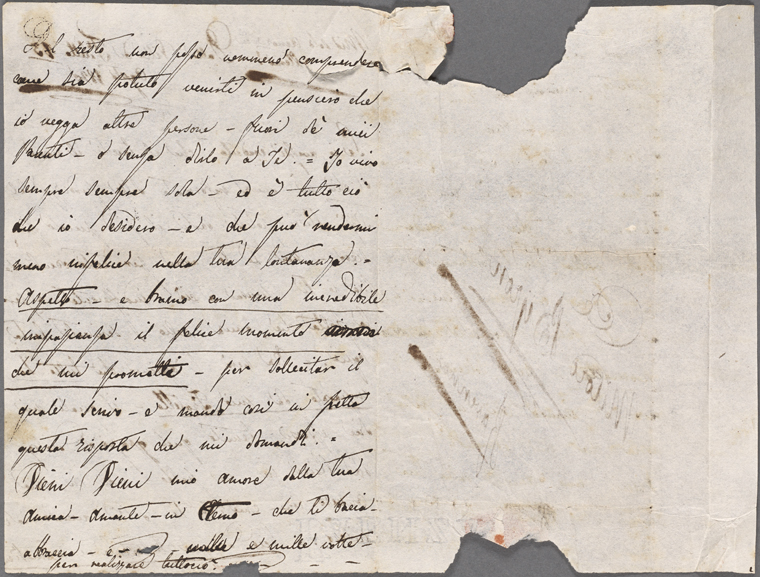 Del resto non posso nemmeno comprendere
come sia potuto venirti in pensiero che
io vegga altre persone – fuori de' miei
Parenti – e senza dirlo a Te. = Io vivo
sempre sempre sola – ed è tutto ciò
che io desidero – e che può rendermi
meno infelice nella tua lontananza. =
Aspetto – e bramo con una incredibile
impazienza il felice momento
che mi prometti – per sollecitar il
quale scrivo – e mando così in fretta
questa risposta che mi domandi. =
Vieni Vieni mio amore dalla tua
amica – amante – in – che ti bacia
abbraccia – e – mille e mille volte –
per realizare tuttociò